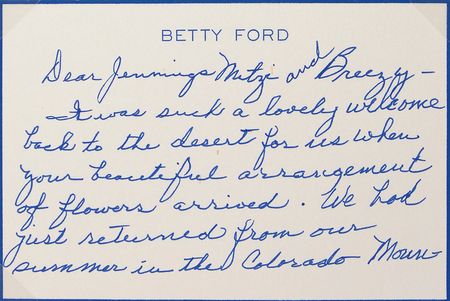 BETTY FORD
Dear Jennings Mitzi and Breezy –
It was such a lovely welcome
back to the desert for us when
your beautiful arrangement
of flowers arrived. We had
just returned from our
summer in the Colorado Moun-